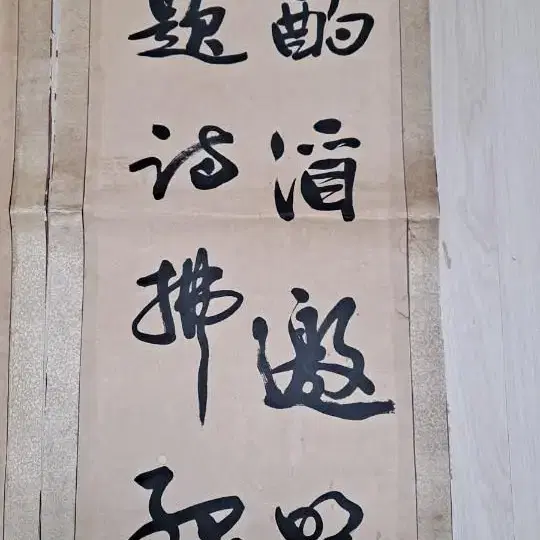 酌酒邀明
題詩拂